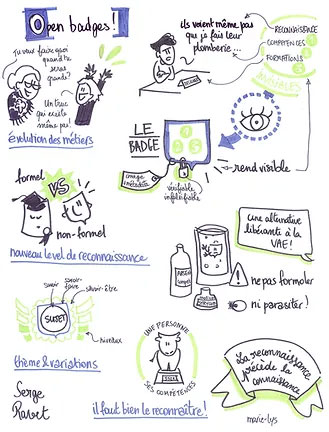 Open badges!
Tu veux faire quoi
quand tu
seras
grande?
Un truc
qui existe
même pas!
évolution des métiers
ils voient même pas
que je fais leur
plomberie...
RECONNAISSANCE
COMPÉTENCES
FORMATIONS
INVISIBLES
LE
BADGE
image
métadata
vérifiable
infalsifiable
rend visible
formel
VS
non-formel
nouveau level de reconnaissance
une alternative
libérante à la
VAE!
ne pas formoler
ni parasiter!
savoir
savoir-
faire
savoir-être
SUJET
niveaux
thème & variations
UNE PERSONNE
SES COMPÉTENCES
il faut bien le reconnaître!
La reconnaissance
précède la
connaissance
Serge
Ravet
marie-lys